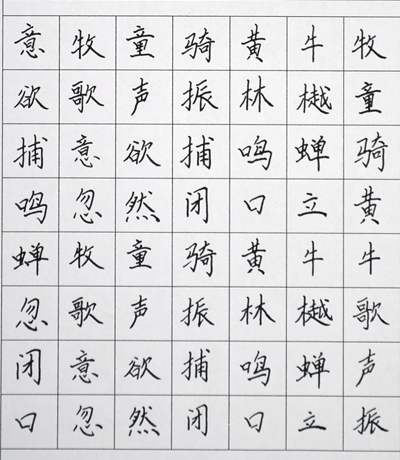 意牧童骑黄牛牧
欲歌声振林樾童
捕意欲捕鸣蝉骑
鸣忽然闭口立黄
蝉牧童骑黄牛牛
忽歌声振林樾歌
闭意欲捕鸣蝉声
口忽然闭口立振